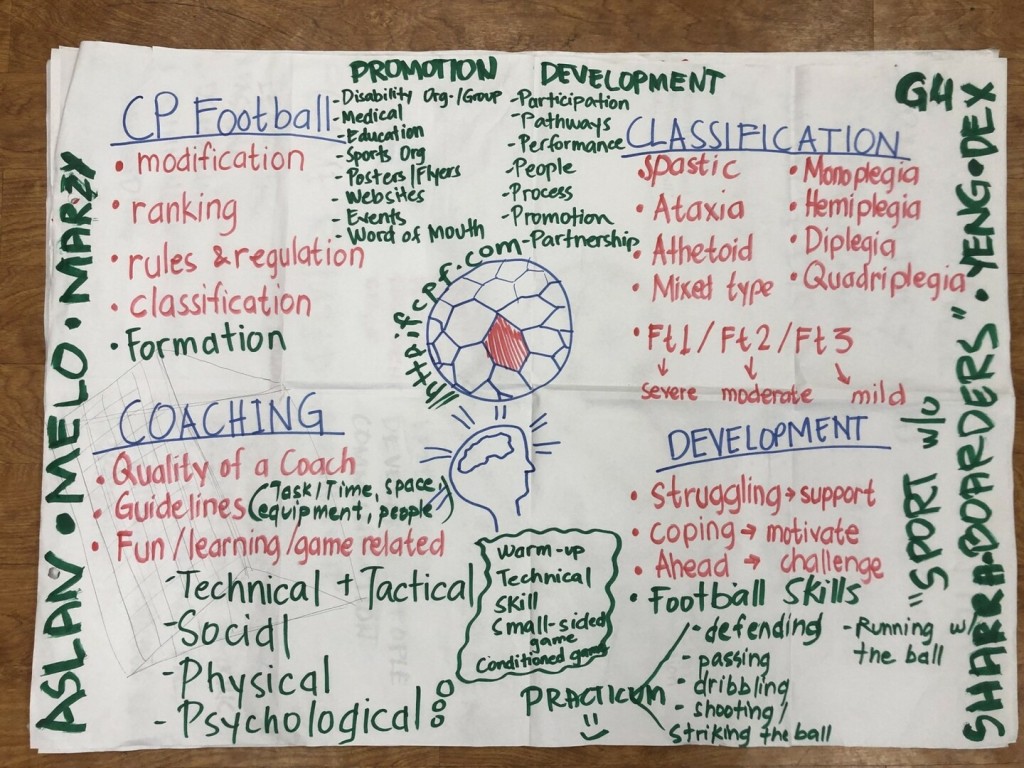 PROMOTION
-Disability Org./Group
-Medical
-Education
-Sports Org
-Posters/Flyers
-Websites
-Events
-Word of Mouth
DEVELOPMENT
-Participation
-Pathways
-Performance
-People
-Process
-Promotion
-Partnership
G4
CP Football
• modification
• ranking
• rules & regulation
• classification
• Formation
CLASSIFICATION
spastic
• Ataxia
• Athetoid
• Mixed type
• Monoplegia
• Hemiplegia
• Diplegia
• Quadriplegia
• Ft1 / Ft2 / Ft3
severe moderate mild
//http ifcpf.com
COACHING
• Quality of a Coach
• Guidelines (Task/Time, space, equipment, people)
• Fun/learning/game related
-Technical + Tactical
-Social
-Physical
-Psychological
Warm-up
Technical
Skill
Small-sided
game
Conditioned game
DEVELOPMENT
• Struggling → support
• coping → motivate
• Ahead → challenge
• Football Skills
PRACTICUM
- defending
- passing
- dribbling
- shooting/
striking the ball
- Running w/
the ball
ASLAN • MELO • MARZY
"SPORT w/o
BOARDERS"
SHARRA • YENG • DEX